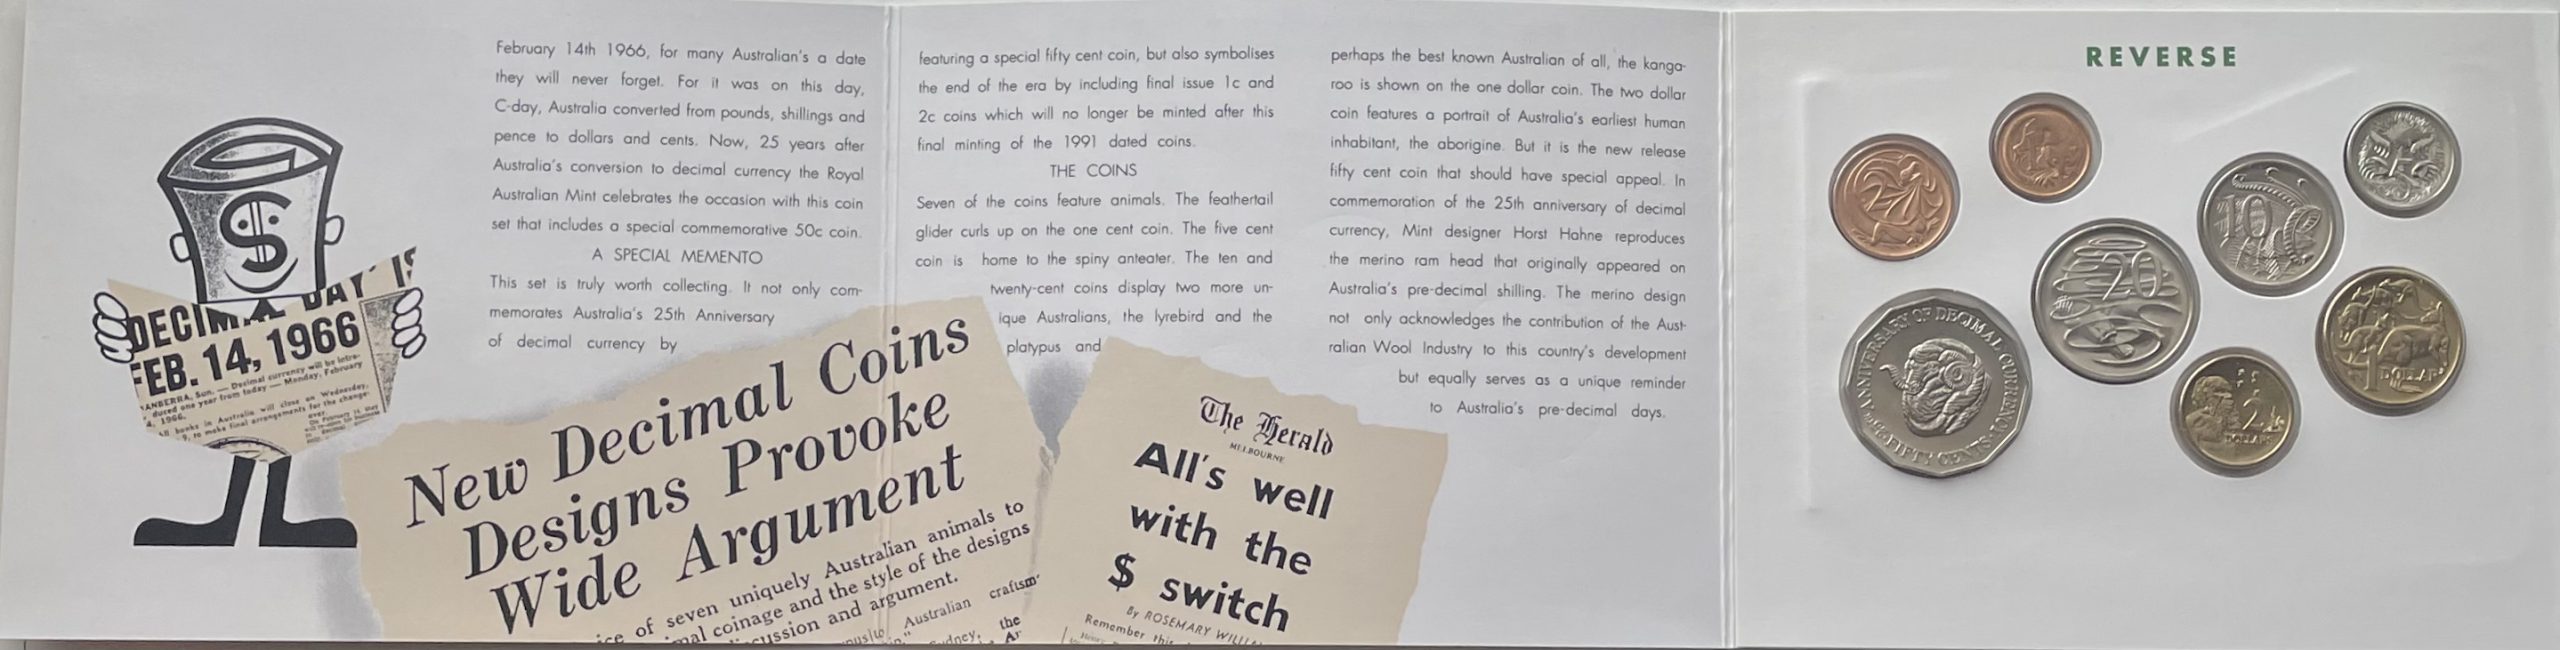 DECIMAL DAY IS
FEB. 14, 1966
CANBERRA, Sun. — Decimal currency will be intro-
duced one year from today — Monday, February
4, 1966.
All banks in Australia will close on Wednesday,
9, to make final arrangements for the change-
over.
February 14th 1966, for many Australian's a date
they will never forget. For it was on this day,
C-day, Australia converted from pounds, shillings and
pence to dollars and cents. Now, 25 years after
Australia's conversion to decimal currency the Royal
Australian Mint celebrates the occasion with this coin
set that includes a special commemorative 50c coin.
A SPECIAL MEMENTO
This set is truly worth collecting. It not only com-
memorates Australia's 25th Anniversary
of decimal currency by
New Decimal Coins
Designs Provoke
Wide Argument
of seven uniquely Australian animals to
coinage and the style of the designs
and argument.
Australian
the
featuring a special fifty cent coin, but also symbolises
the end of the era by including final issue 1c and
2c coins which will no longer be minted after this
final minting of the 1991 dated coins.
THE COINS
Seven of the coins feature animals. The feathertail
glider curls up on the one cent coin. The five cent
coin is home to the spiny anteater. The ten and
twenty-cent coins display two more un-
ique Australians, the lyrebird and the
platypus and
The Herald
MELBOURNE
All's well
with the
$ switch
By ROSEMARY
Remember this
perhaps the best known Australian of all, the kanga-
roo is shown on the one dollar coin. The two dollar
coin features a portrait of Australia's earliest human
inhabitant, the aborigine. But it is the new release
fifty cent coin that should have special appeal. In
commemoration of the 25th anniversary of decimal
currency, Mint designer Horst Hahne reproduces
the merino ram head that originally appeared on
Australia's pre-decimal shilling. The merino design
not only acknowledges the contribution of the Aust-
ralian Wool Industry to this country's development
but equally serves as a unique reminder
to Australia's pre-decimal days.
REVERSE
2
1
5
10
20
25th ANNIVERSARY OF DECIMAL CURRENCY
FIFTY CENTS
2
DOLLARS
1 DOLLAR